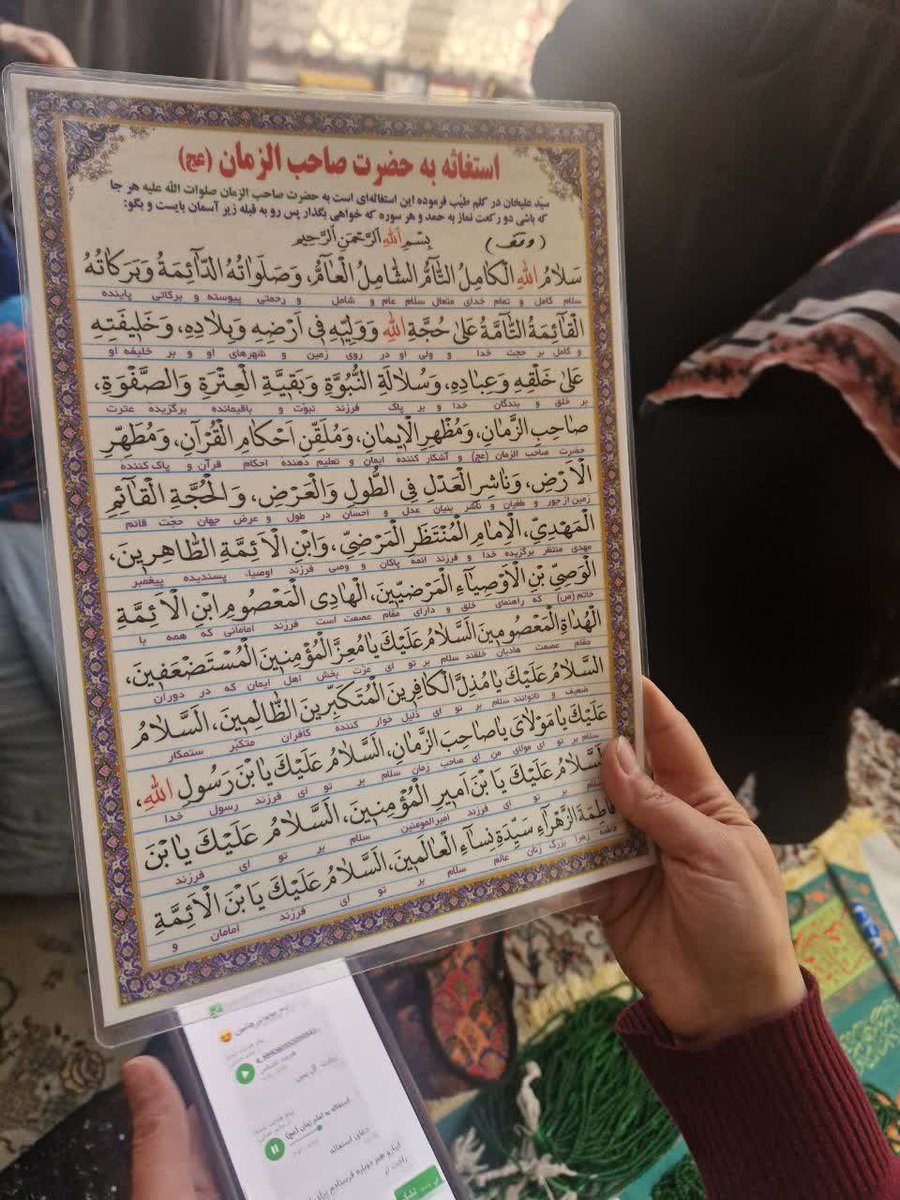 استغاثه به حضرت صاحب الزمان (عج)
سیّد علیخان در کلم طیّب فرموده این استغاثه‌ای است به حضرت صاحب الزمان صلوات الله علیه هر جا
که باشی دو رکعت نماز به حمد و هر سوره که خواهی بگذار پس رو به قبله زیر آسمان بایست و بگو:
بِسْمِ اللهِ الرَّحْمٰنِ الرَّحِیمِ (وقف)
سَلامُ اللهِ الْکامِلُ التَّآمُّ الشّامِلُ الْعآمُّ، وَصَلَواتُهُ الدّآئِمَةُ وَبَرَکاتُهُ
سلام کامل و تمام خدای متعال سلام عام و شامل و رحمتی پیوسته و برکاتی پاینده
الْقآئِمَةُ التّآمَّةُ عَلیٰ حُجَّةِ اللهِ وَوَلِیِّهِ فی اَرْضِهِ وَبِلادِهِ، وَخَلیفَتِهِ
و کامل بر حجت خدا و ولی او در روی زمین و شهرهای او و بر خلیفه او
عَلیٰ خَلْقِهِ وَعِبادِهِ، وَسُلالَةِ النُّبُوَّةِ وَبَقِیَّةِ الْعِتْرَةِ وَالصَّفْوَةِ،
بر خلق و بندگان خدا و بر پاک فرزند نبوّت و باقیمانده برگزیده عترت
صاحِبِ الزَّمانِ، وَمُظْهِرِ الْإیمانِ، وَمُلَقِّنِ اَحْکامِ الْقُرْآنِ، وَمُطَهِّرِ
حضرت صاحب الزمان (عج) و آشکار کننده ایمان و تعلیم دهنده احکام قرآن و پاک کننده
الْاَرْضِ، وَناشِرِ الْعَدْلِ فِی الطُّولِ وَالْعَرْضِ، وَالْحُجَّةِ الْقآئِمِ
زمین از جور و طغیان و ناشر بنیان عدل و احسان در طول و عرض جهان حجت قائم
الْمَهْدِیِّ، الْاِمامِ الْمُنْتَظَرِ الْمَرْضِیِّ، وَابْنِ الْاَئِمَّةِ الطّاهِرینَ،
مهدی منتظر برگزیده خدا و فرزند ائمه پاکان و وصی فرزند اوصیاء پسندیده پیغمبر
الْوَصِیِّ بْنِ الْاَوْصِیآءِ الْمَرْضِیّینَ، الْهادِی الْمَعْصُومِ ابْنِ الْاَئِمَّةِ
خاتم (ص) که راهنمای خلق و دارای مقام عصمت است فرزند امامانی که همه با
الْهُداةِ الْمَعْصُومینَ السَّلامُ عَلَیْکَ یا مُعِزَّ الْمُؤْمِنینَ الْمُسْتَضْعَفینَ،
مقام عصمت هادیان خلقند سلام بر تو ای عزت بخش اهل ایمان که در دوران
السَّلامُ عَلَیْکَ یا مُذِلَّ الْکافِرینَ الْمُتَکَبِّرینَ الظّالِمینَ، السَّلامُ
ضعیف و ناتوانند سلام بر تو ای ذلیل خوار کننده کافران متکبر ستمکار
عَلَیْکَ یا مَوْلایَ یا صاحِبَ الزَّمانِ، اَلسَّلامُ عَلَیْکَ یَا بْنَ رَسُولِ اللهِ،
سلام بر تو ای مولای من ای صاحب زمان سلام بر تو ای فرزند رسول خدا
اَلسَّلامُ عَلَیْکَ یَا بْنَ اَمیرِ الْمُؤْمِنینَ، اَلسَّلامُ عَلَیْکَ یَا بْنَ
سلام بر تو ای فرزند امیرالمومنین سلام بر تو ای فرزند
فاطِمَةَ الزَّهْراءِ سَیِّدَةِ نِساءِ الْعالَمینَ، اَلسَّلامُ عَلَیْکَ یَا بْنَ الْاَئِمَّةِ
فاطمه زهرا بزرگ زنان عالم سلام بر تو ای فرزند امامان و
استغاثه به امام زمان (عج)
دعای استغاثه